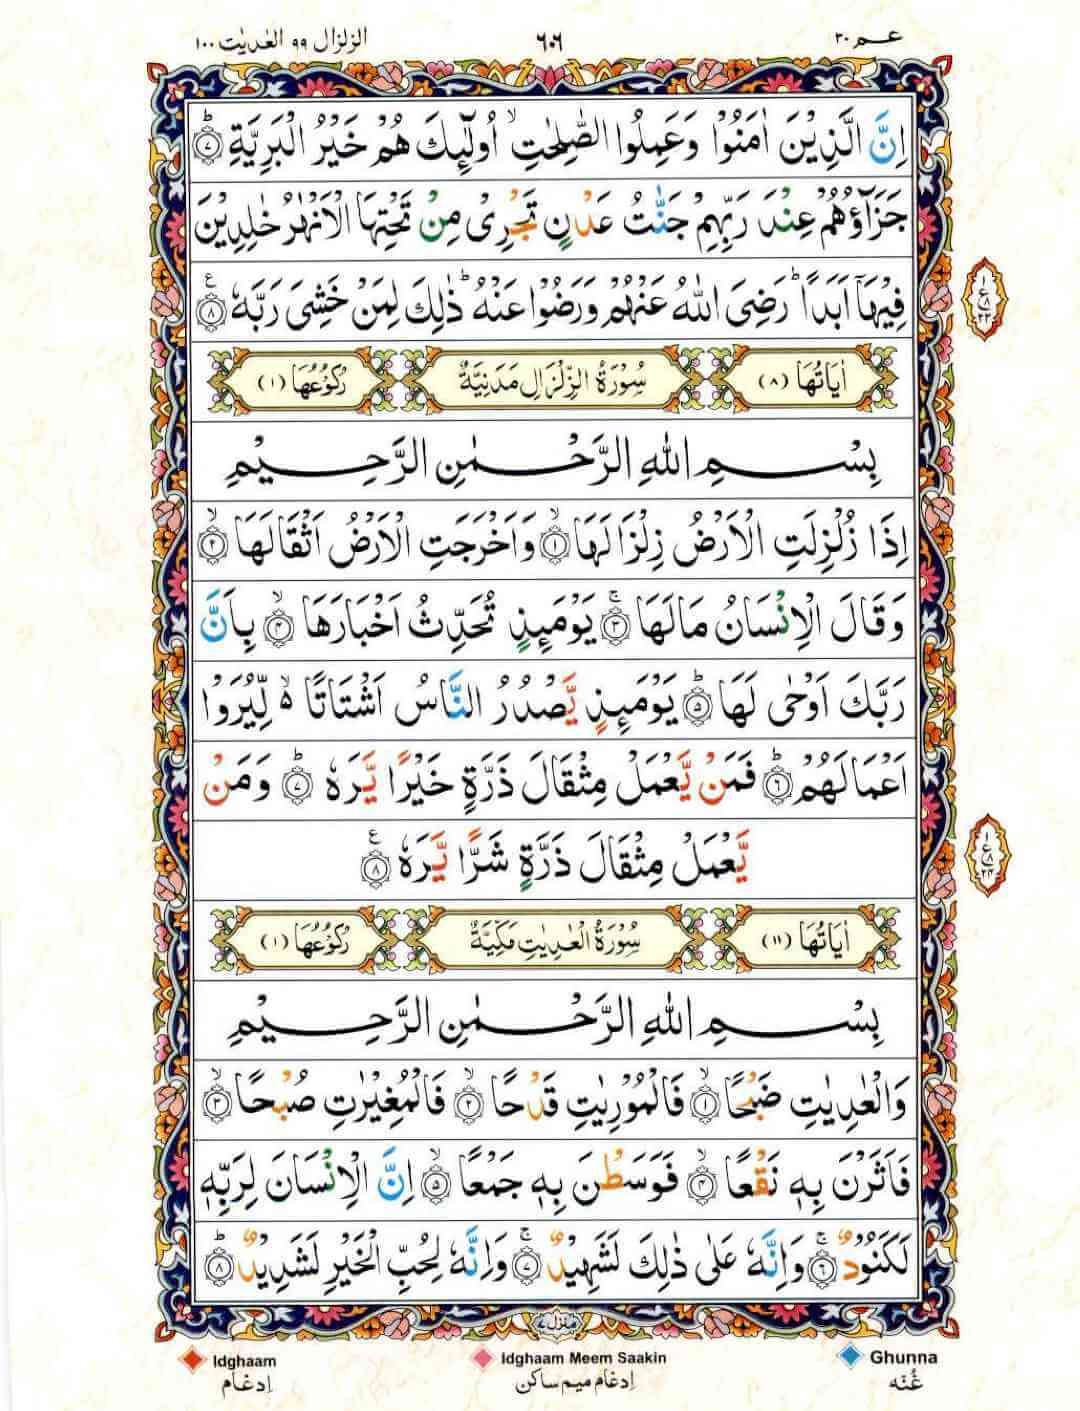 عــم ٣٠
٦٠٦
الزلزال ٩٩ العٰديٰت ١٠٠
اِنَّ الَّذِيْنَ اٰمَنُوْا وَعَمِلُوا الصّٰلِحٰتِ ۙ اُولٰٓئِكَ هُمْ خَيْرُ الْبَرِيَّةِ ؕ ﴿٧﴾
جَزَآؤُهُمْ عِنْدَ رَبِّهِمْ جَنّٰتُ عَدْنٍ تَجْرِىْ مِنْ تَحْتِهَا الْاَنْهٰرُ خٰلِدِيْنَ
فِيْهَاۤ اَبَدًا ؕ رَضِىَ اللّٰهُ عَنْهُمْ وَرَضُوْا عَنْهُ ؕ ذٰلِكَ لِمَنْ خَشِىَ رَبَّهٗ ﴿٨﴾
ع
١
٨
٢٣
اٰيَاتُهَا (٨) سُوْرَةُ الزِّلْزَالِ مَدَنِيَّةٌ رُكُوْعُهَا (١)
بِسْــــمِ اللّٰهِ الرَّحْــمٰنِ الرَّحِــــيْمِ
اِذَا زُلْزِلَتِ الْاَرْضُ زِلْزَالَهَا ۙ ﴿١﴾ وَاَخْرَجَتِ الْاَرْضُ اَثْقَالَهَا ۙ ﴿٢﴾
وَقَالَ الْاِنْسَانُ مَا لَهَا ۚ ﴿٣﴾ يَوْمَئِذٍ تُحَدِّثُ اَخْبَارَهَا ۙ ﴿٤﴾ بِاَنَّ
رَبَّكَ اَوْحٰى لَهَا ؕ ﴿٥﴾ يَوْمَئِذٍ يَّصْدُرُ النَّاسُ اَشْتَاتًا ۙ لِّيُرَوْا
اَعْمَالَهُمْ ؕ ﴿٦﴾ فَمَنْ يَّعْمَلْ مِثْقَالَ ذَرَّةٍ خَيْرًا يَّرَهٗ ؕ ﴿٧﴾ وَمَنْ
يَّعْمَلْ مِثْقَالَ ذَرَّةٍ شَرًّا يَّرَهٗ ﴿٨﴾
ع
١
٨
٢٤
اٰيَاتُهَا (١١) سُوْرَةُ الْعٰدِيٰتِ مَكِّيَّةٌ رُكُوْعُهَا (١)
بِسْــــمِ اللّٰهِ الرَّحْــمٰنِ الرَّحِــــيْمِ
وَالْعٰدِيٰتِ ضَبْحًا ۙ ﴿١﴾ فَالْمُوْرِيٰتِ قَدْحًا ۙ ﴿٢﴾ فَالْمُغِيْرٰتِ صُبْحًا ۙ ﴿٣﴾
فَاَثَرْنَ بِهٖ نَقْعًا ۙ ﴿٤﴾ فَوَسَطْنَ بِهٖ جَمْعًا ۙ ﴿٥﴾ اِنَّ الْاِنْسَانَ لِرَبِّهٖ
لَكَنُوْدٌ ۚ ﴿٦﴾ وَاِنَّهٗ عَلٰى ذٰلِكَ لَشَهِيْدٌ ۚ ﴿٧﴾ وَاِنَّهٗ لِحُبِّ الْخَيْرِ لَشَدِيْدٌ ؕ ﴿٨﴾
منزل ٧
Idghaam
اِدغام
Idghaam Meem Saakin
اِدغام ميم ساكن
Ghunna
غُنّه